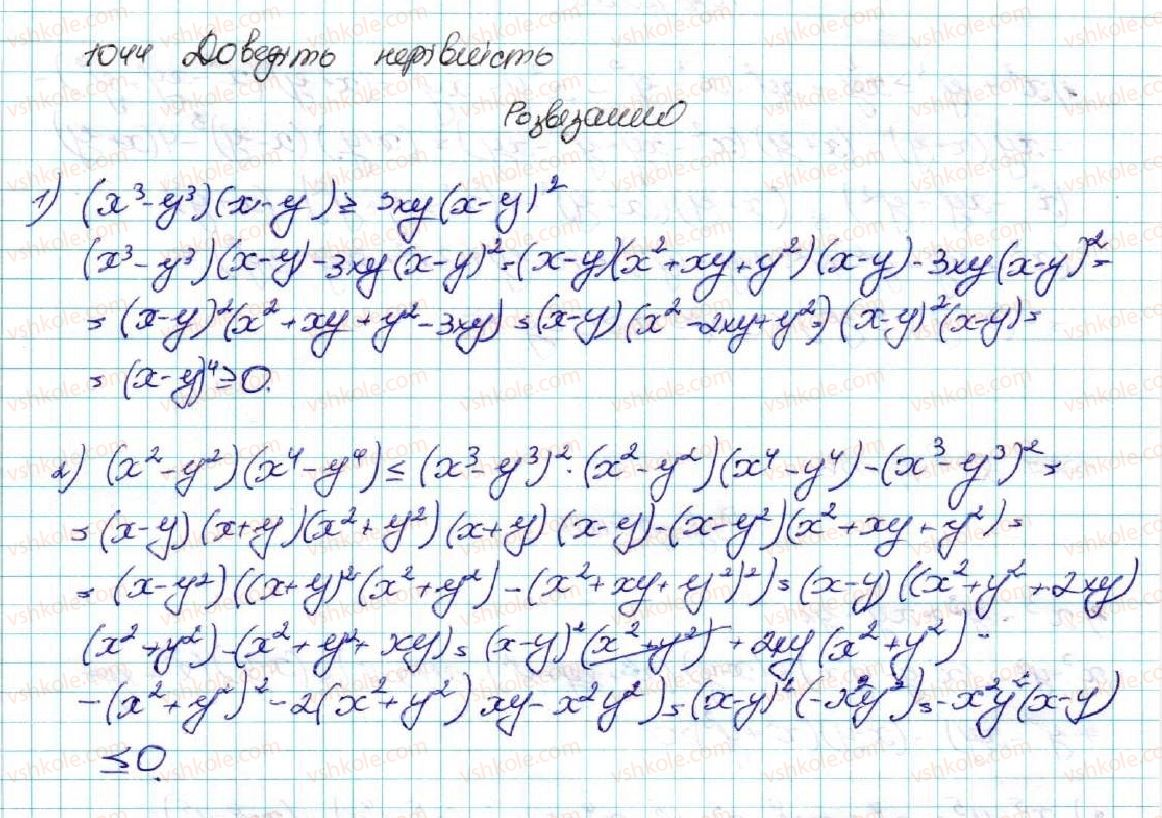 1044 Доведіть нерівність
Розвезанно
1) (x³-y³)(x-y)≥ 3xy(x-y)²
(x³-y³)(x-y)-3xy(x-y)²=(x-y)(x²+xy+y²)(x-y)-3xy(x-y)²=
= (x-y)²(x²+xy+y²-3xy)=(x-y)(x²-2xy+y²=)(x-y)²(x-y)=
= (x-y)⁴≥0.
2) (x²-y²)(x⁴-y⁴)≤(x³-y³)²·(x²-y²)(x⁴-y⁴)-(x³-y³)²=
=(x-y)(x+y)(x²+y²)(x+y)(x-y)-(x-y²)(x²+xy+y²)=
= (x-y²)((x+y)²(x²+y²)-(x²+xy+y²)²)=(x-y)((x²+y²+2xy)
(x²+y²)-(x²+y²+xy)=(x-y)²(x²+y²)+2xy(x²+y²)-
-(x²+y²)²-2(x²+y²)xy-x²y²)=(x-y)²(-x²y²)=-x²y²(x-y)
≤0.